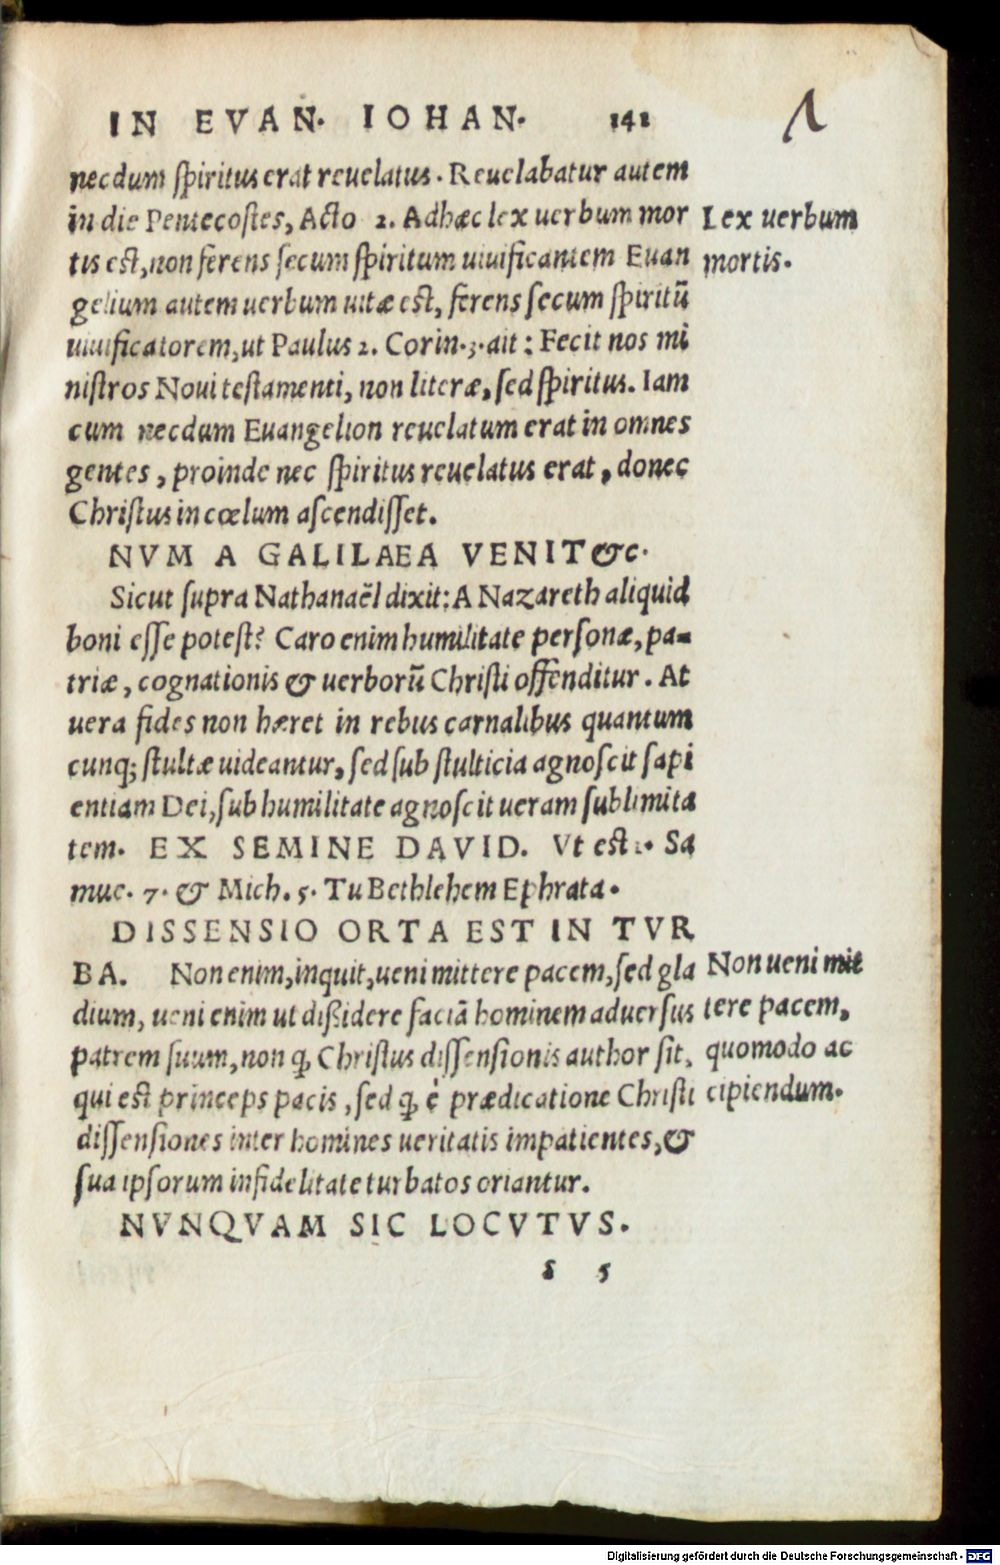 IN EVAN. IOHAN. 141
necdum spiritus erat reuelatus. Reuelabatur autem
in die Pentecostes, Acto 2. Adhæc lex uerbum mor
tis est, non ferens secum spiritum uiuificantem Euan
gelium autem uerbum uitæ est, ferens secum spiritū
uiuificatorem, ut Paulus 2. Corin. 3. ait: Fecit nos mi
nistros Noui testamenti, non literæ, sed spiritus. Iam
cum necdum Euangelion reuelatum erat in omnes
gentes, proinde nec spiritus reuelatus erat, donec
Christus in cœlum ascendisset.
Lex uerbum
mortis.
NVM A GALILAEA VENIT &c.
Sicut supra Nathanaēl dixit: A Nazareth aliquid
boni esse potest? Caro enim humilitate personæ, pa-
triæ, cognationis & uerborū Christi offenditur. At
uera fides non hæret in rebus carnalibus quantum
cunq; stultæ uideantur, sed sub stulticia agnoscit sapi
entiam Dei, sub humilitate agnoscit ueram sublimita
tem. EX SEMINE DAVID. Vt est Sa
mue. 7. & Mich. 5. Tu Bethlehem Ephrata.
DISSENSIO ORTA EST IN TVR
BA. Non enim, inquit, ueni mittere pacem, sed gla
dium, ueni enim ut dißidere faciā hominem aduersus
patrem suum, non ꝙ Christus dissensionis author sit,
qui est princeps pacis, sed ꝙ è prædicatione Christi
dissensiones inter homines ueritatis impatientes, &
sua ipsorum infidelitate turbatos oriantur.
Non ueni mit
tere pacem,
quomodo ac
cipiendum.
NVNQVAM SIC LOCVTVS.
s 5
Digitalisierung gefördert durch die Deutsche Forschungsgemeinschaft - DFG